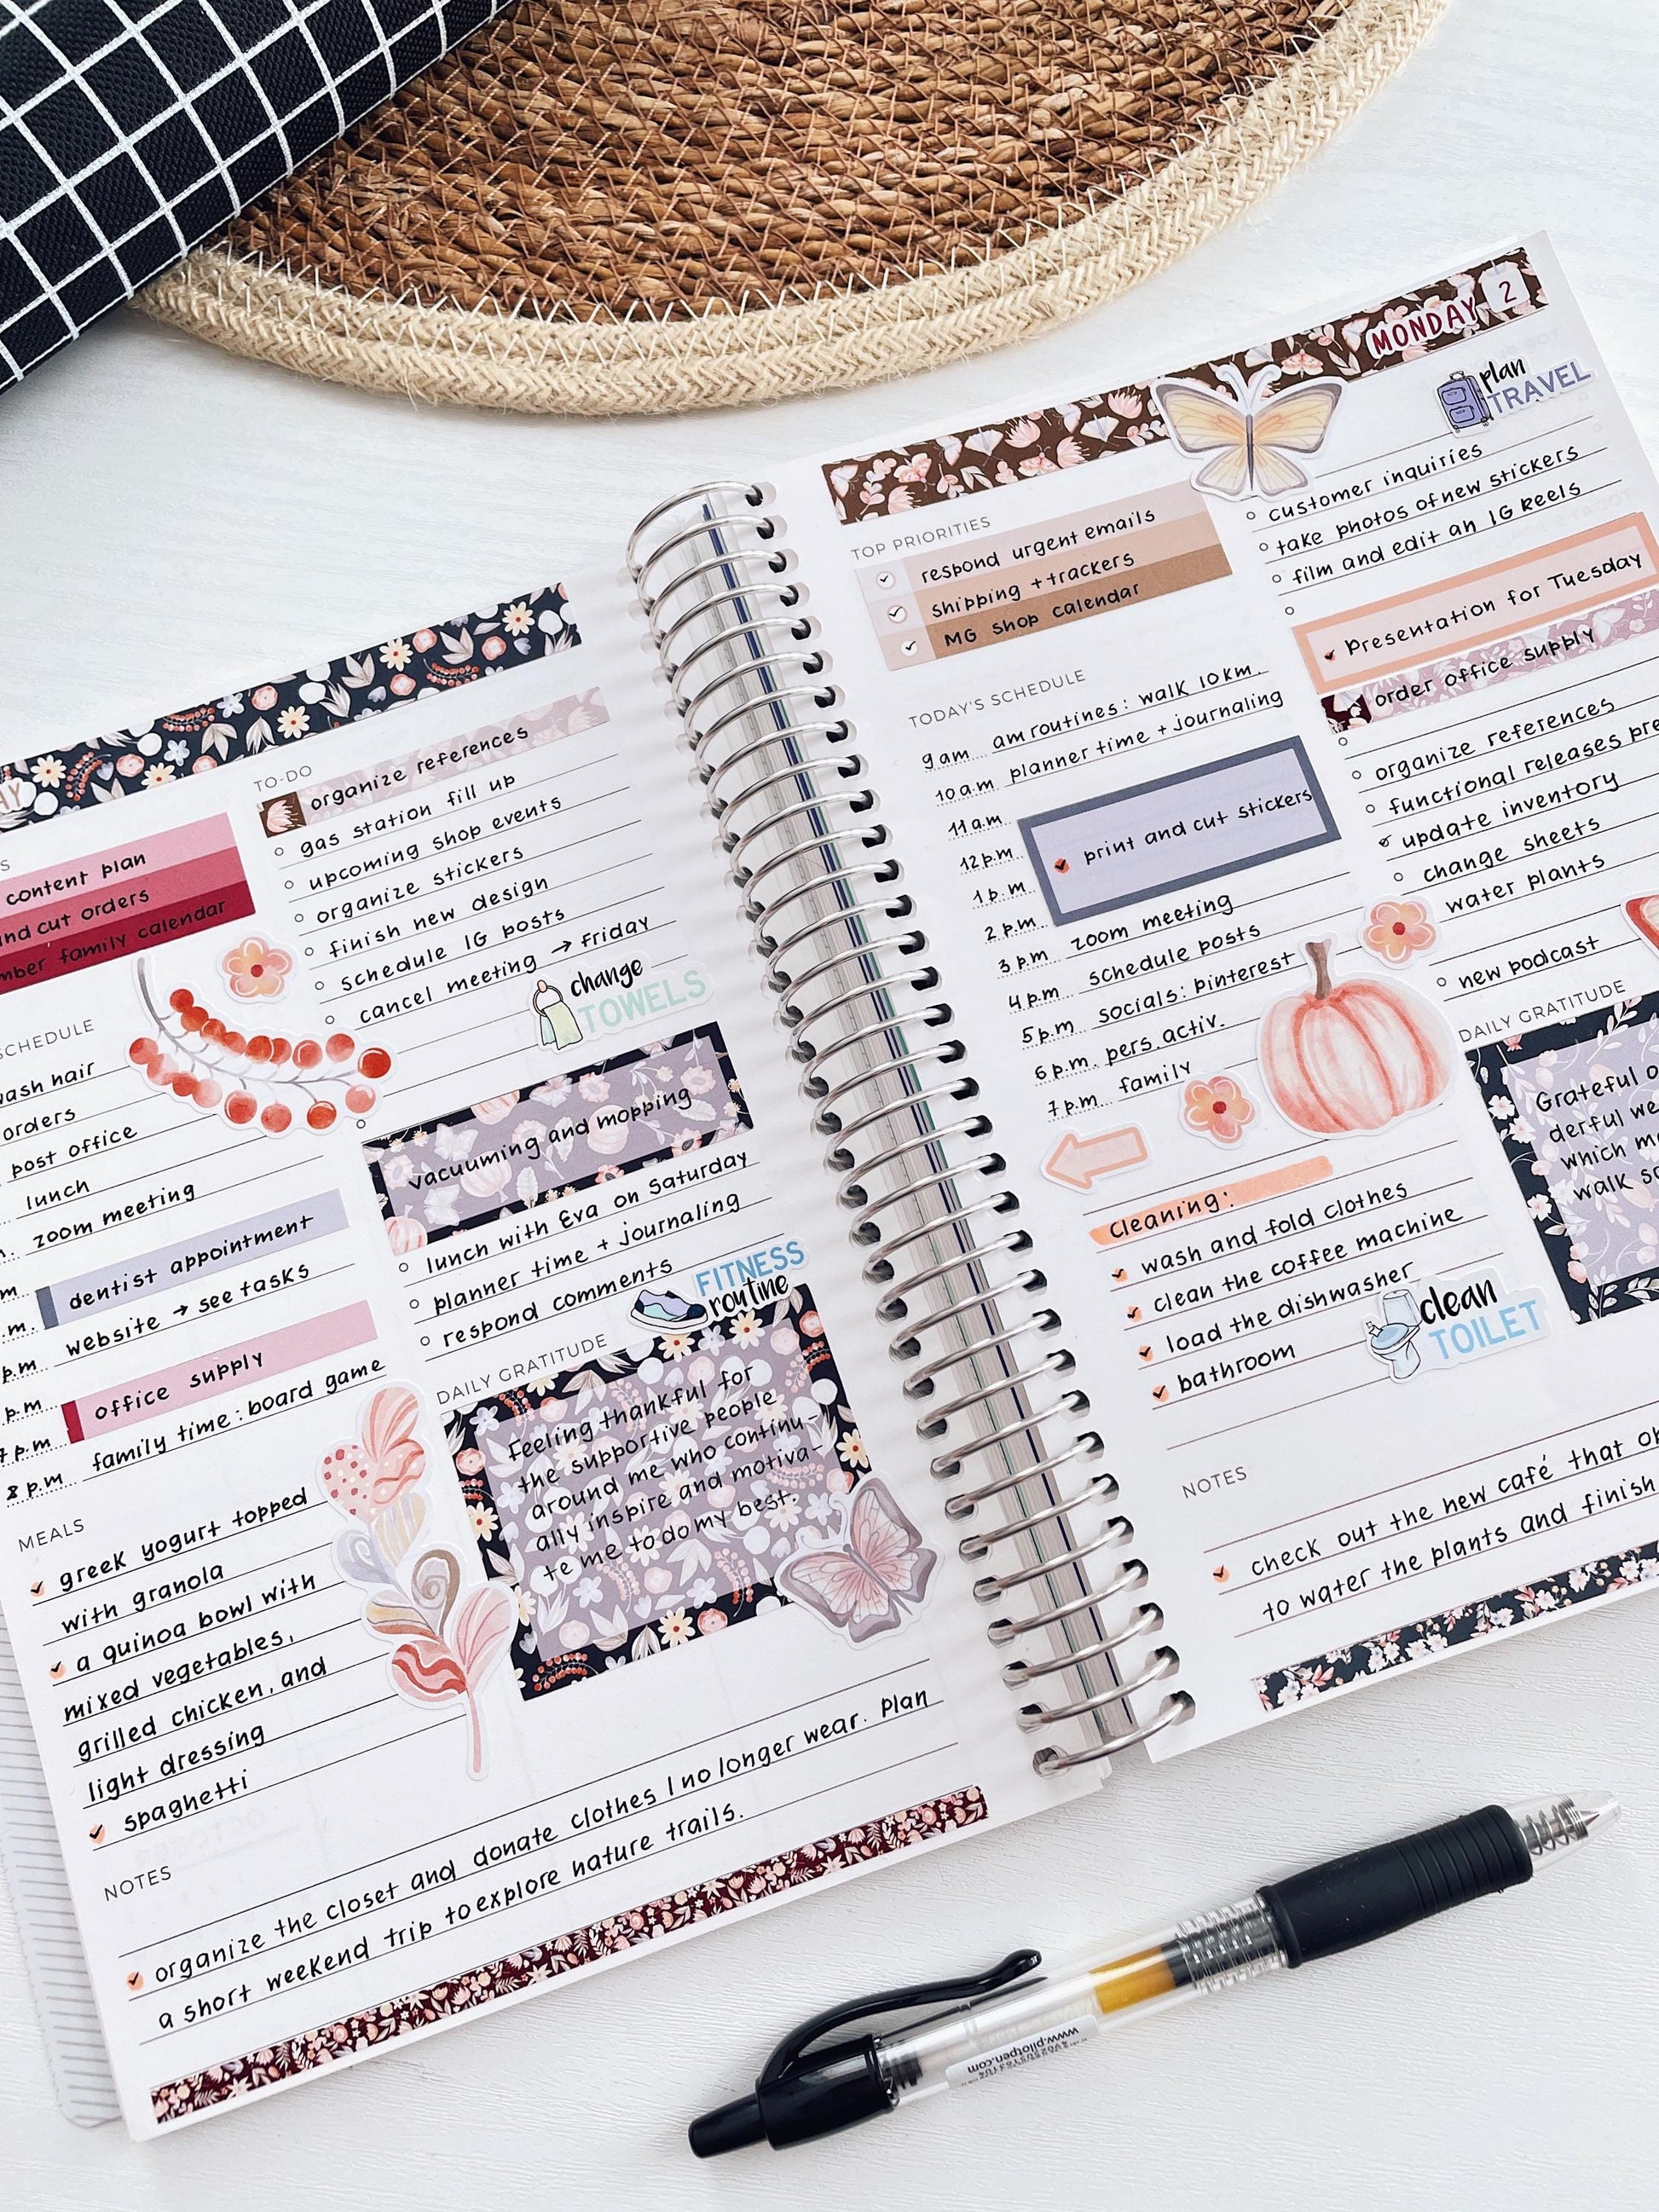 content plan
and cut orders
family calendar
SCHEDULE
wash hair
orders
post office
lunch
zoom meeting
dentist appointment
website → see tasks
office supply
7 p.m
family time: board game
8 p.m.
MEALS
greek yogurt topped
with granola
a quinoa bowl with
mixed vegetables,
grilled chicken, and
light dressing
spaghetti
TO-DO
organize references
gas station fill up
upcoming shop events
organize stickers
finish new design
schedule IG posts
cancel meeting → Friday
change
TOWELS
vacuuming and mopping
lunch with Eva on Saturday
planner time + journaling
respond comments
FITNESS
routine
DAILY GRATITUDE
Feeling thankful for
the supportive people
around me who continu-
ally inspire and motiva-
te me to do my best.
NOTES
organize the closet and donate clothes I no longer wear. Plan
a short weekend trip to explore nature trails.
MONDAY 2
TOP PRIORITIES
respond urgent emails
shipping + trackers
MG Shop Calendar
TODAY'S SCHEDULE
9 am am routines: walk 10km.
10 a.m planner time + journaling
11 a.m
12 p.m
print and cut stickers
1 p.m
2 p.m zoom meeting
3 p.m schedule posts
4 p.m socials: pinterest
5 p.m pers. activ.
6 p.m. family
7 p.m.
Cleaning:
wash and fold clothes
clean the coffee machine
load the dishwasher
bathroom
clean
TOILET
plan
TRAVEL
customer inquiries
take photos of new stickers
film and edit an IG Reels
Presentation for Tuesday
order office supply
organize references
functional releases pre
update inventory
change sheets
water plants
new podcast
DAILY GRATITUDE
Grateful
derful we
which
walk
NOTES
check out the new café that
to water the plants and finish
www.pilotpen.com